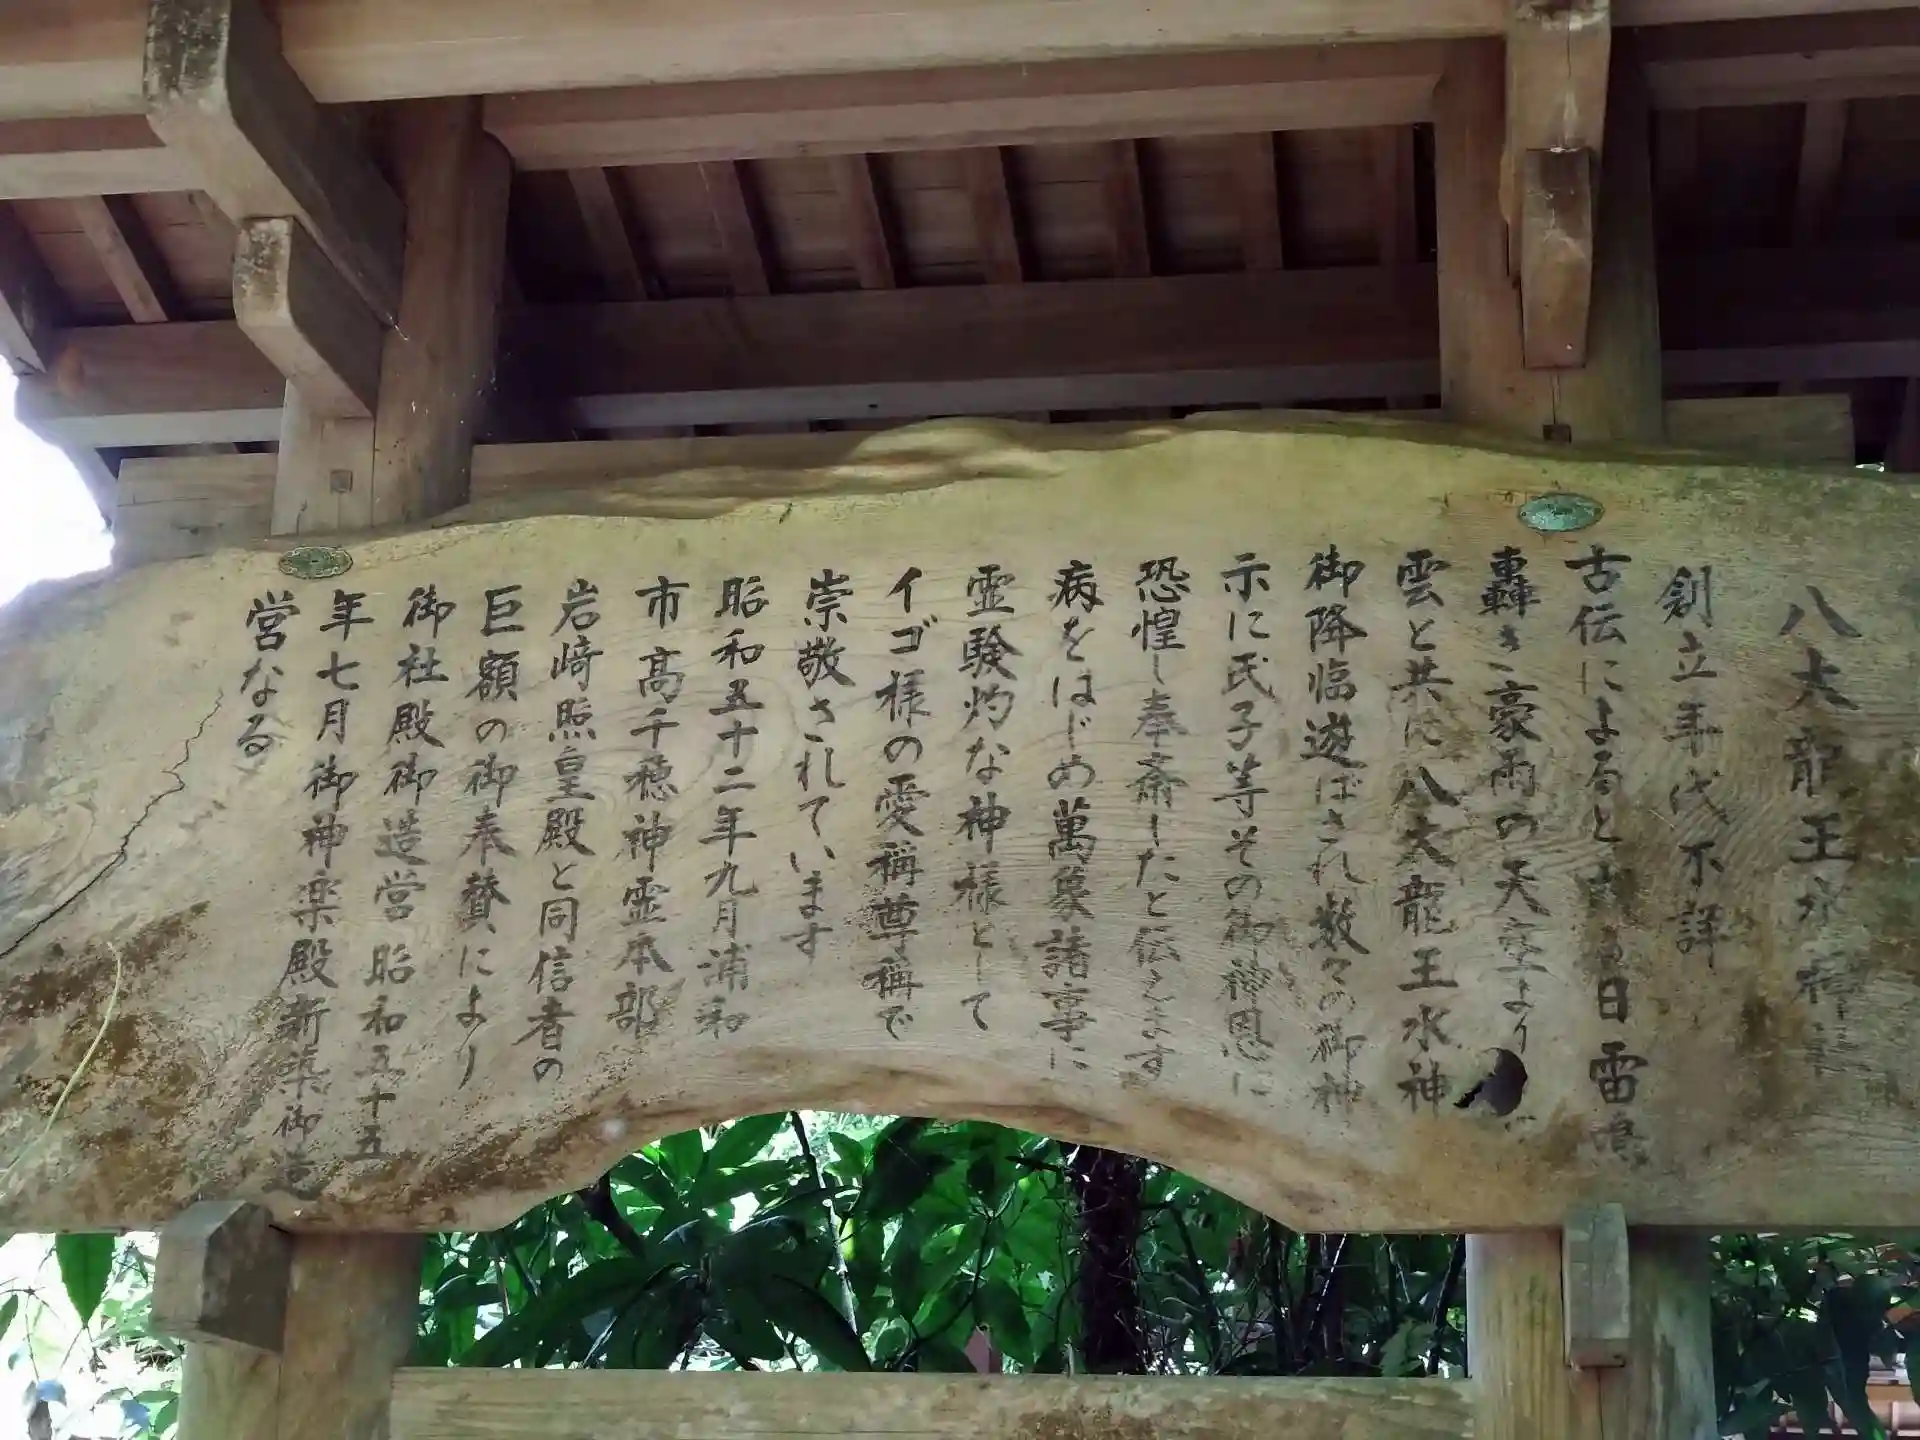 八大龍王水神
創立年代不詳
古伝によると 日雷鳴
轟き豪雨の天空より
雲と共に八大龍王水神
御降臨遊ばされ数々の御神
示に氏子等その御神恩に
恐惶し奉斎したと伝えます
病をはじめ萬象諸事に
霊験灼な神様として
イゴ様の愛稱尊稱で
崇敬されています
昭和五十二年九月浦和
市高千穂神霊本部
岩﨑照皇殿と同信者の
巨額の御奉賛により
御社殿御造営昭和五十五
年七月御神楽殿新築御造
営なる